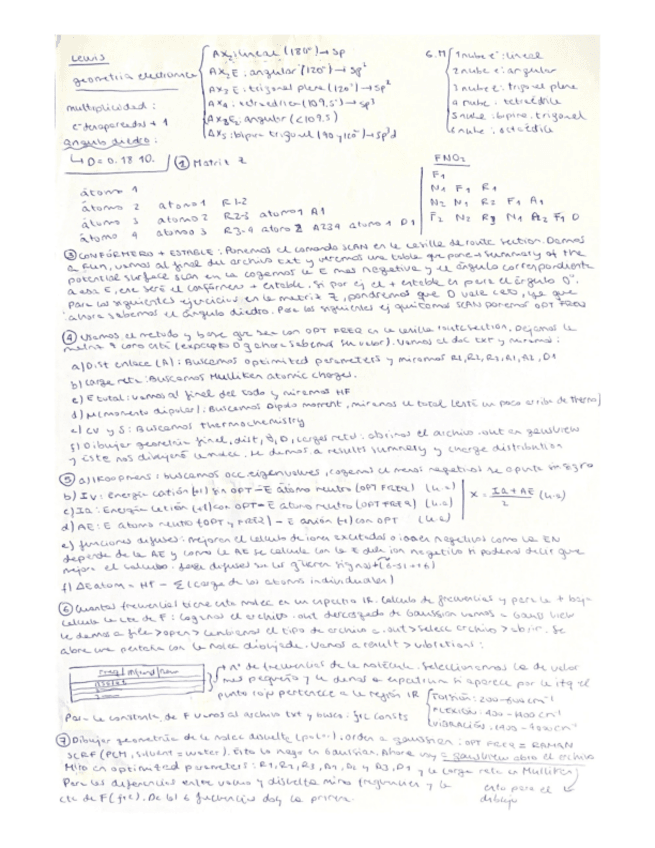 Lewis
geometría electrónica
AX2: lineal (180°) → sp
AX2E: angular (120°) → sp2
AX3: trigonal plana (120°) → sp2
AX4: tetraédrica (109,5°) → sp3
AX2E2: angular (<109,5)
AX5: bipir. trigonal (90 y 120°) → sp3d
G.M
1 nube e-: lineal
2 nube e-: angular
3 nube e-: trigonal plana
4 nube: tetraédrica
5 nube: bipira. trigonal
6 nube: octaédrica
multiplicidad:
e- desapareados + 1
ángulo diedro:
↳ D = 0. 18 10.
① Matriz Z
átomo 1
átomo 2 átomo 1 R1-2
átomo 3 átomo 2 R2-3 átomo 1 A1
átomo 4 átomo 3 R3-4 átomo 2 A234 átomo 1 D1
FNO2
F1
N1 F1 R1
③ CONFÓRMERO + ESTABLE: Ponemos el comando SCAN en la casilla de route section. Damos
a RUN, vamos al final del archivo txt y veremos una tabla que pone + Summary of the
potential surface scan en la cogemos la E mas negativa y el ángulo correspondiente
a esa E, ese será el confórmero + estable. Si por ej el + estable es para el ángulo 0°,
para los siguientes ejercicios en la matriz Z, pondremos que D vale cero, ya que
ahora sabemos el ángulo diedro. Para los siguientes ej quitamos SCAN ponemos OPT FREQ
④ Usamos el metodo y base que sea con OPT FREQ en la casilla route section, dejamos la
matriz Z como está (excepto D q ahora sabemos su valor). Vamos al doc txt y miramos:
a) Dist enlace (A): Buscamos optimized parameters y miramos R1, R2, R3, A1, A2, D1
b) carga neta: Buscamos Mulliken atomic charges.
c) E total: vamos al final del todo y miramos HF
d) μ (momento dipolar): Buscamos Dipole moment, miramos el total (está un poco arriba de Thermo)
e) CV y S: Buscamos thermochemistry
f) Dibujar geometría final, dist, D, cargas neta: abrimos el archivo .out en gaussview
y este nos dibujará la molec. Le damos a results summary y charge distribution
⑤ a) Koopmans: buscamos occ. eigenvalues, cogemos el menos negativo
b) Iv: Energía catión (+1) sin OPT - E átomo neutro (OPT FREQ) (u.a)
c) Ia: Energía catión (+1) con OPT - E átomo neutro (OPT+FREQ) (u.a)
d) AE: E átomo neutro (OPT y FREQ) - E anión con OPT (u.a)
e) funciones difusas: mejoran el calculo de iones excitados o iones negativos como la EN
depende de la AE y como la AE se calcula con la E del ion negativo si podemos decir que
mejora el calculo.
f) ΔE atom = HF - Σ (carga de los átomos individuales)
⑥ Cuantas frecuencias tiene esta molec en un espectro IR. Calculo de frecuencias y para la + baja
calcula la cte de F: cogemos el archivo .out descargado de Gaussian vamos a Gauss View
le damos a file > open > cambiamos el tipo de archivo a .out > select archivo > abrir. Se
abre una pestaña con la molec dibujada. Vamos a result > vibrations:
→ nº de frecuencias de la molécula. Seleccionamos la de valor
mas pequeño y le damos a espectrum si aparece
punto rojo pertenece a la región IR
TORSIÓN: 200-600 cm-1
FLEXIÓN: 400-1400 cm-1
Para la constante de F vamos al archivo txt y busco: frc consts
⑦ Dibujar geometría de la molec disuelta. Orden a gaussian: OPT FREQ = RAMAN
SCRF (PCM, Solvent = water). Esto lo hago en Gaussian. Ahora voy a gaussview abro el archivo
Miro en optimized parameters: R1, R2, R3, A1, A2 y A3, D1 y la carga neta en Mulliken
Para las diferencias entre vacio y disuelta miro frequencies y la
cte de F (frc). De las 6 frecuencias doy la primera.
esto para el
dibujo